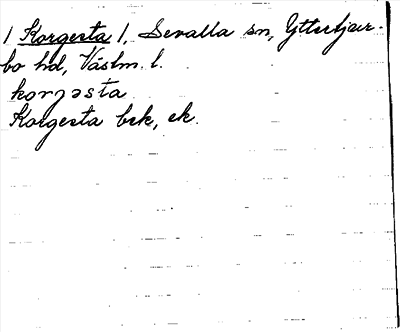 / Korgesta /, Sevalla sn, Yttertjur-
bo hd, Västm. l.
korgəsta
Korgesta bek, ek.